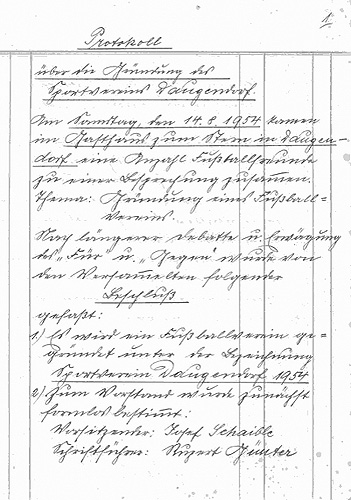 1.
Protokoll
über die Gründung des
Sportvereins Daugendorf.
Am Samstag, den 14.8.1954 kamen
im Gasthaus zum Stern in Daugen-
dorf eine Anzahl Fußballfreunde
zu einer Besprechung zusammen.
Thema: Gründung eines Fußball=
Vereins.
Nach längerer Debatte u. Erwägung
des „Für" u. „Gegen" wurde von
den Versammelten folgender
Beschluß
gefaßt:
1) Es wird ein Fußballverein ge=
gründet unter der Bezeichnung
Sportverein Daugendorf 1954
2) Zum Vorstand wurde zunächst
formlos bestimmt:
Vorsitzender: Josef Schaible
Schriftführer: Rupert Günter